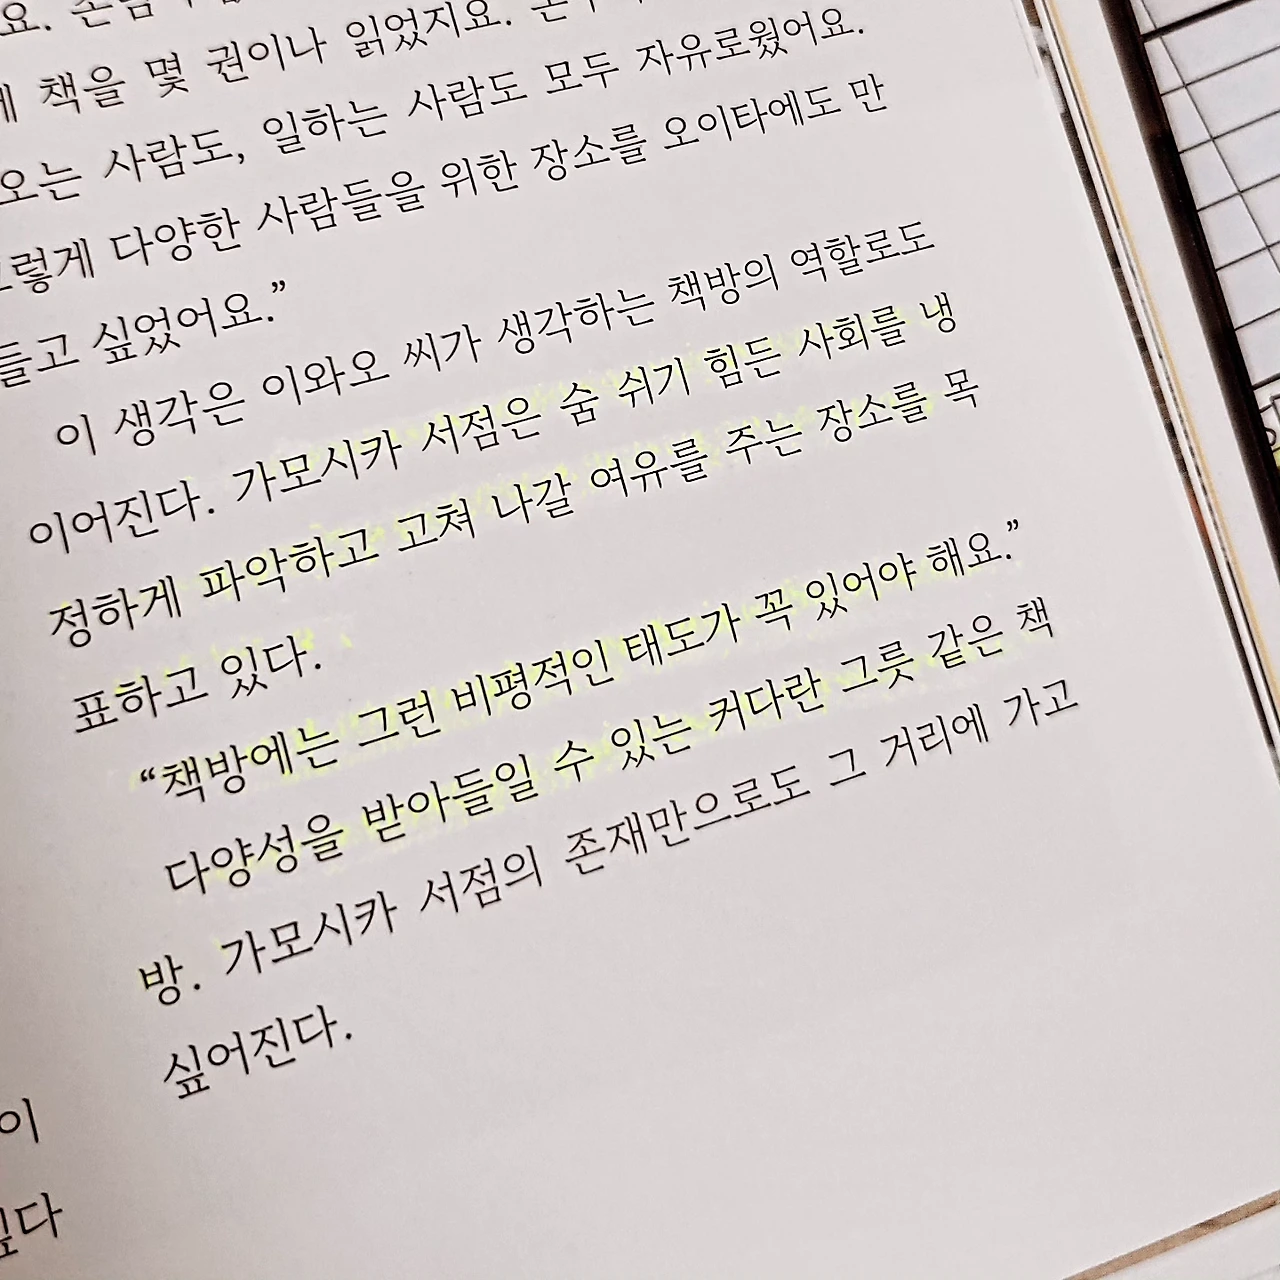 책을 몇 권이나 읽었지요.
오는 사람도, 일하는 사람도 모두 자유로웠어요.
그렇게 다양한 사람들을 위한 장소를 오이타에도 만
들고 싶었어요.”
이 생각은 이와오 씨가 생각하는 책방의 역할로도
이어진다. 가모시카 서점은 숨 쉬기 힘든 사회를 냉
정하게 파악하고 고쳐 나갈 여유를 주는 장소를 목
표하고 있다.
“책방에는 그런 비평적인 태도가 꼭 있어야 해요.”
다양성을 받아들일 수 있는 커다란 그릇 같은 책
방. 가모시카 서점의 존재만으로도 그 거리에 가고
싶어진다.
이